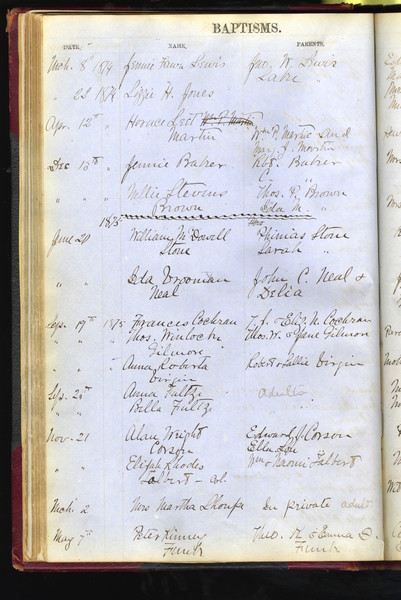 BAPTISMS.
DATE, NAME, PARENTS,
Mch. 8th 1874 Jennie Lewis Jno. W. Lewis
" 22d 1874 Lizzie H. Jones
Apr. 12th " Horace Lect
Martin Wm P. Martin and
Mary J. Martin
Dec 13th " Jennie Baker Robt. Baker
" " " Nellie Stevens Thos. P. Brown
Brown Ada M. "
1875
June 20 William McDowell Phinias Stone
Stone Sarah "
" " Ida Vrooman John C. Neal &
Neal Delia
Sep. 19th 1875 Frances Cochran T. J. & Eliz. N. Cochran
" " Thos. Winlock Thos. W. & Jane Gilmore
Gilmore
" " " Anna Roberta Robert & Sallie Virgin
Virgin
Sep. Anna Fultz adults
" " Bella Fultz "
Nov. 21 Alan Wright Edward J. Corson
Corson Ella Lou
" " Elijah Rhodes Wm & Naomi Talbert
Talbert - col.
Mch. 2 Mrs Martha In private adult
May 7th Peter Kinney & Emma E.
Funk Funk